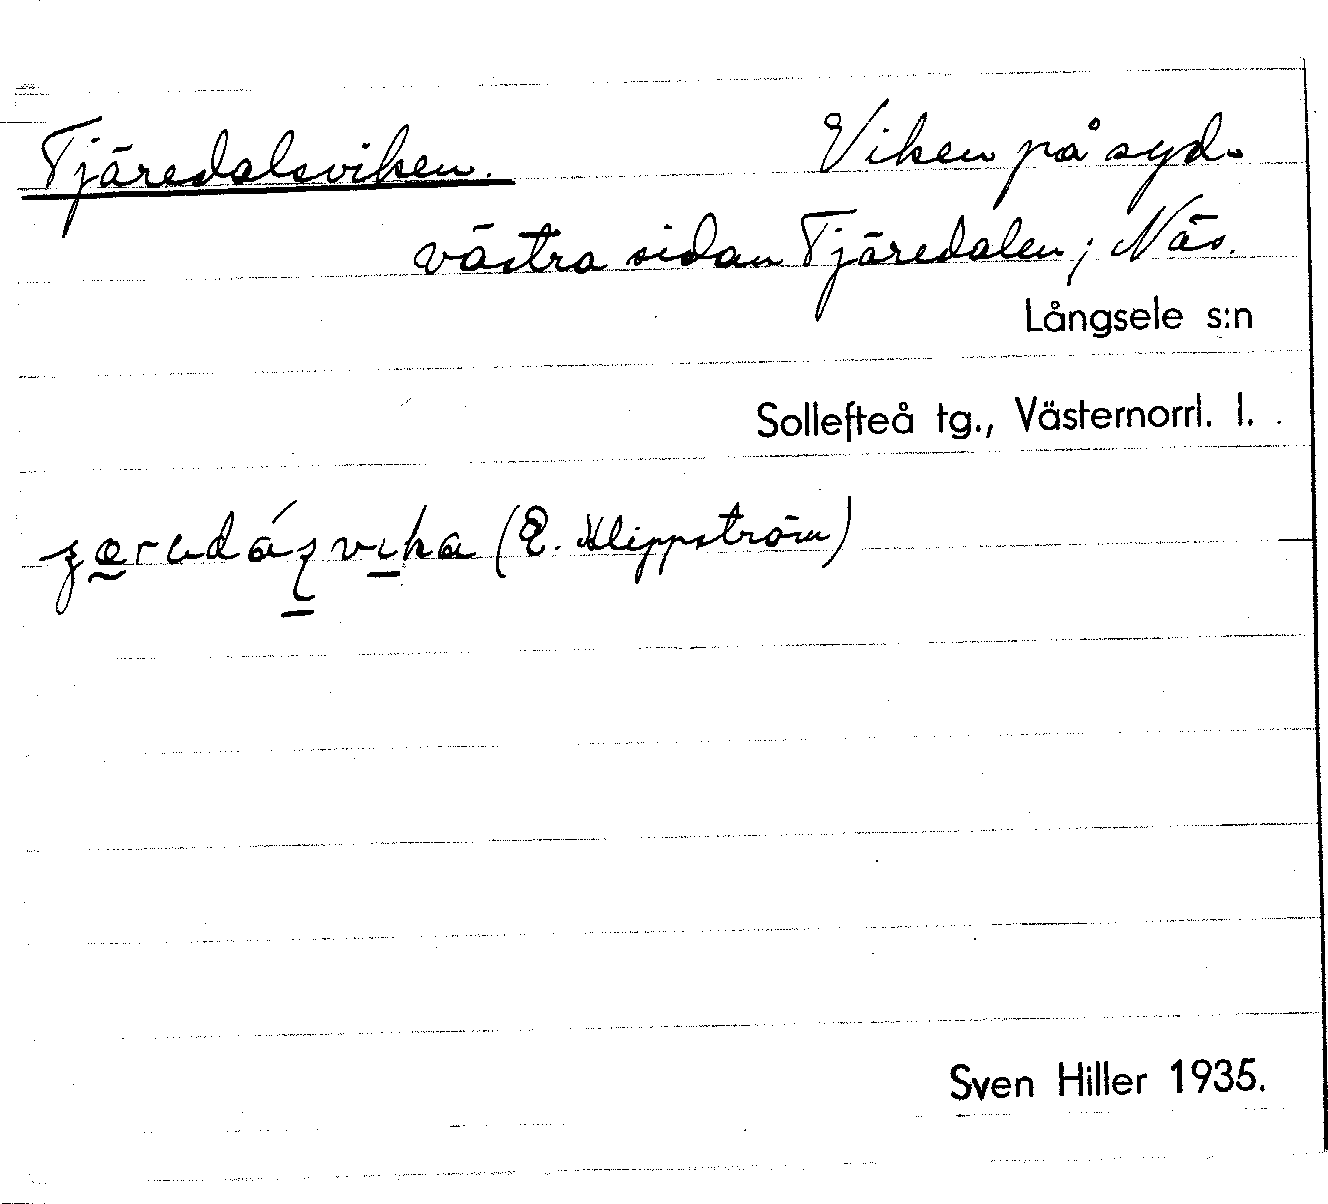 Tjäredalsviken. Viken på syd-
västra sidan Tjäredalen; Näs.
Långsele s:n
Sollefteå tg., Västernorrl. l.
(E. Klippström)
Sven Hiller 1935.